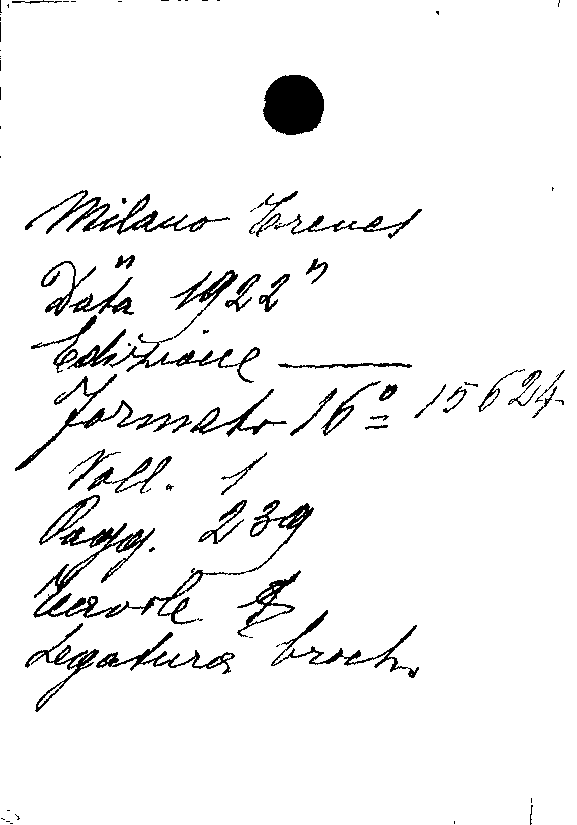 Milano Treves
Data "1922"
Edizione —
Formato 16º 15624
Voll. 1
Pagg. 239
Tavole
Legatura broch.